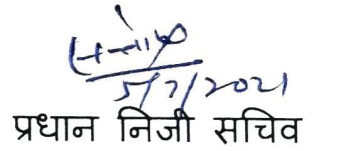 5/7/2021
प्रधान निजी सचिव